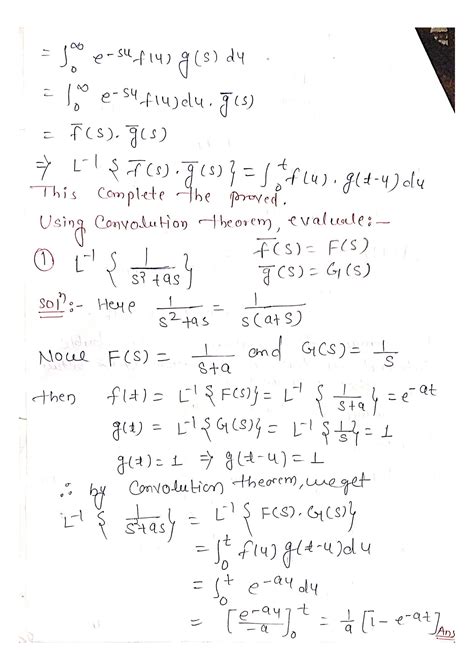 = ∫₀^∞ e^-su f(u) g(s) du
= ∫₀^∞ e^-su f(u) du. g̅(s)
= f̅(s). g̅(s)
⇒ L^-1 { f̅(s). g̅(s) } = ∫₀^t f(u). g(t-u) du
This complete the proved.
Using Convolution theorem, evaluate:-
① L^-1 { 1/(s²+as) } f̅(s) = F(s)
g̅(s) = G(s)
Solⁿ:- Here 1/(s²+as) = 1/(s(a+s))
Now F(s) = 1/(s+a) and G(s) = 1/s
then f(t) = L^-1 { F(s) } = L^-1 { 1/(s+a) } = e^-at
g(t) = L^-1 { G(s) } = L^-1 { 1/s } = 1
g(t) = 1 ⇒ g(t-u) = 1
∴ by Convolution theorem, we get
L^-1 { 1/(s²+as) } = L^-1 { F(s). G(s) }
= ∫₀^t f(u) g(t-u) du
= ∫₀^t e^-au du
= [ e^-au/-a ]₀^t = 1/a [1 - e^-at] Ans